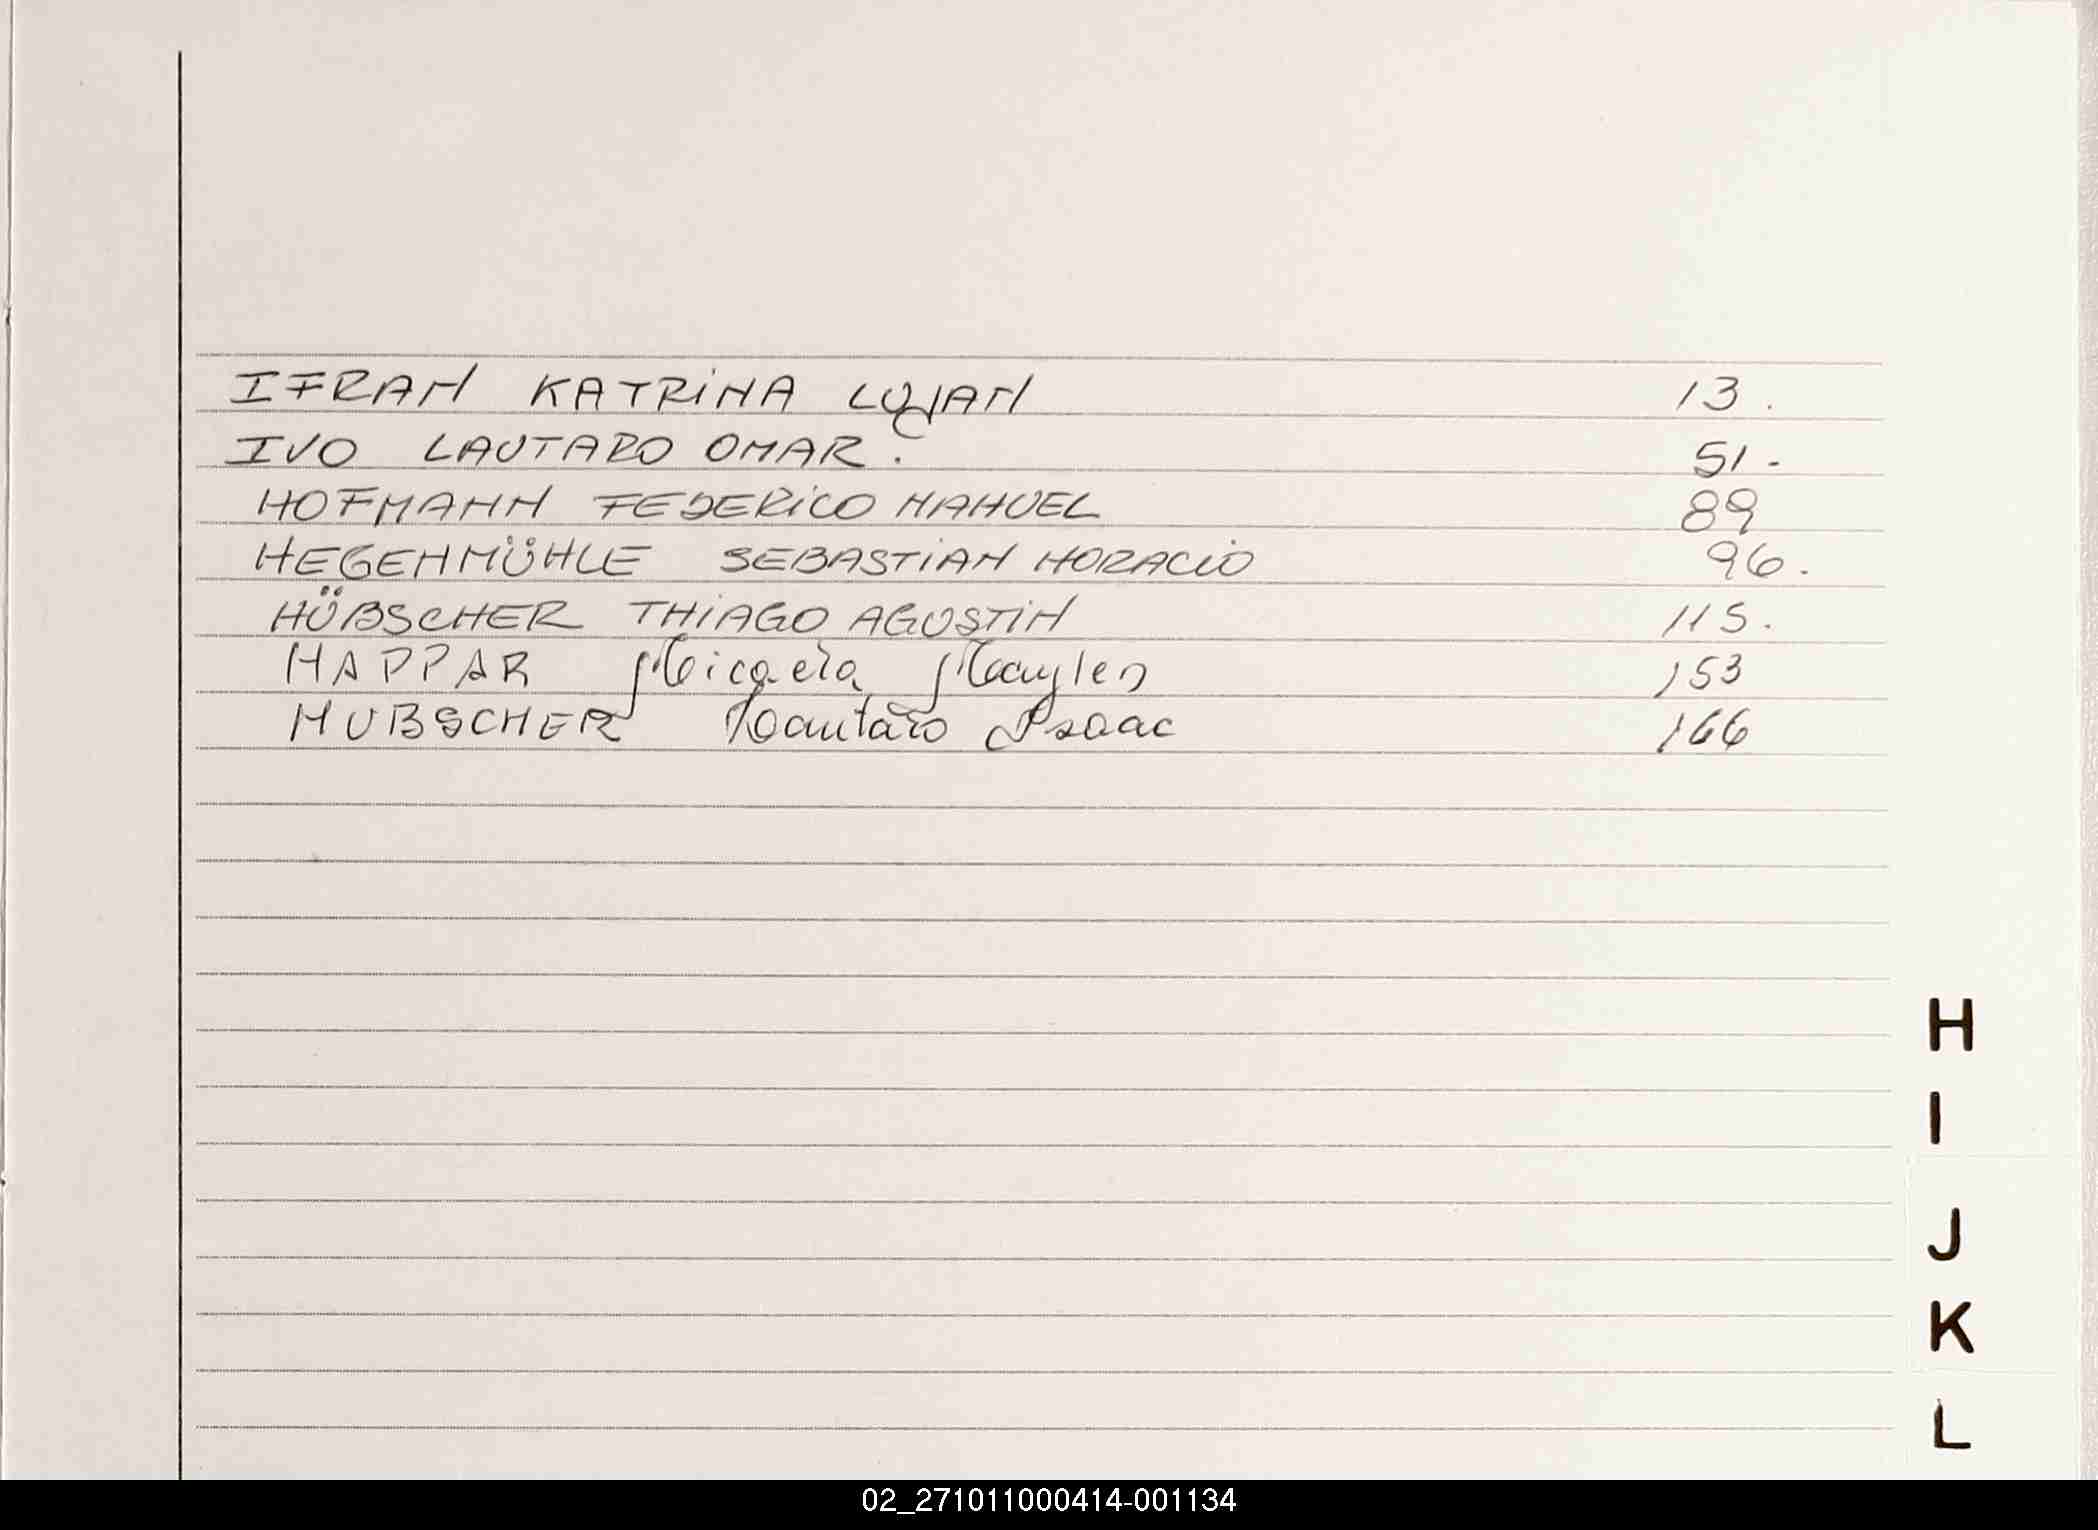 IFRAN KATRINA LUJAN 13.
IVO LAUTARO OMAR. 51.
HOFMANN FEDERICO NAHUEL 89
HEGENMÜHLE SEBASTIAN HORACIO 96.
HÜBSCHER THIAGO AGUSTIN 115.
HAPPAR Micaela Maylen 153
HUBSCHER Lautaro Isaac 166
H
I
J
K
L
02_271011000414-001134